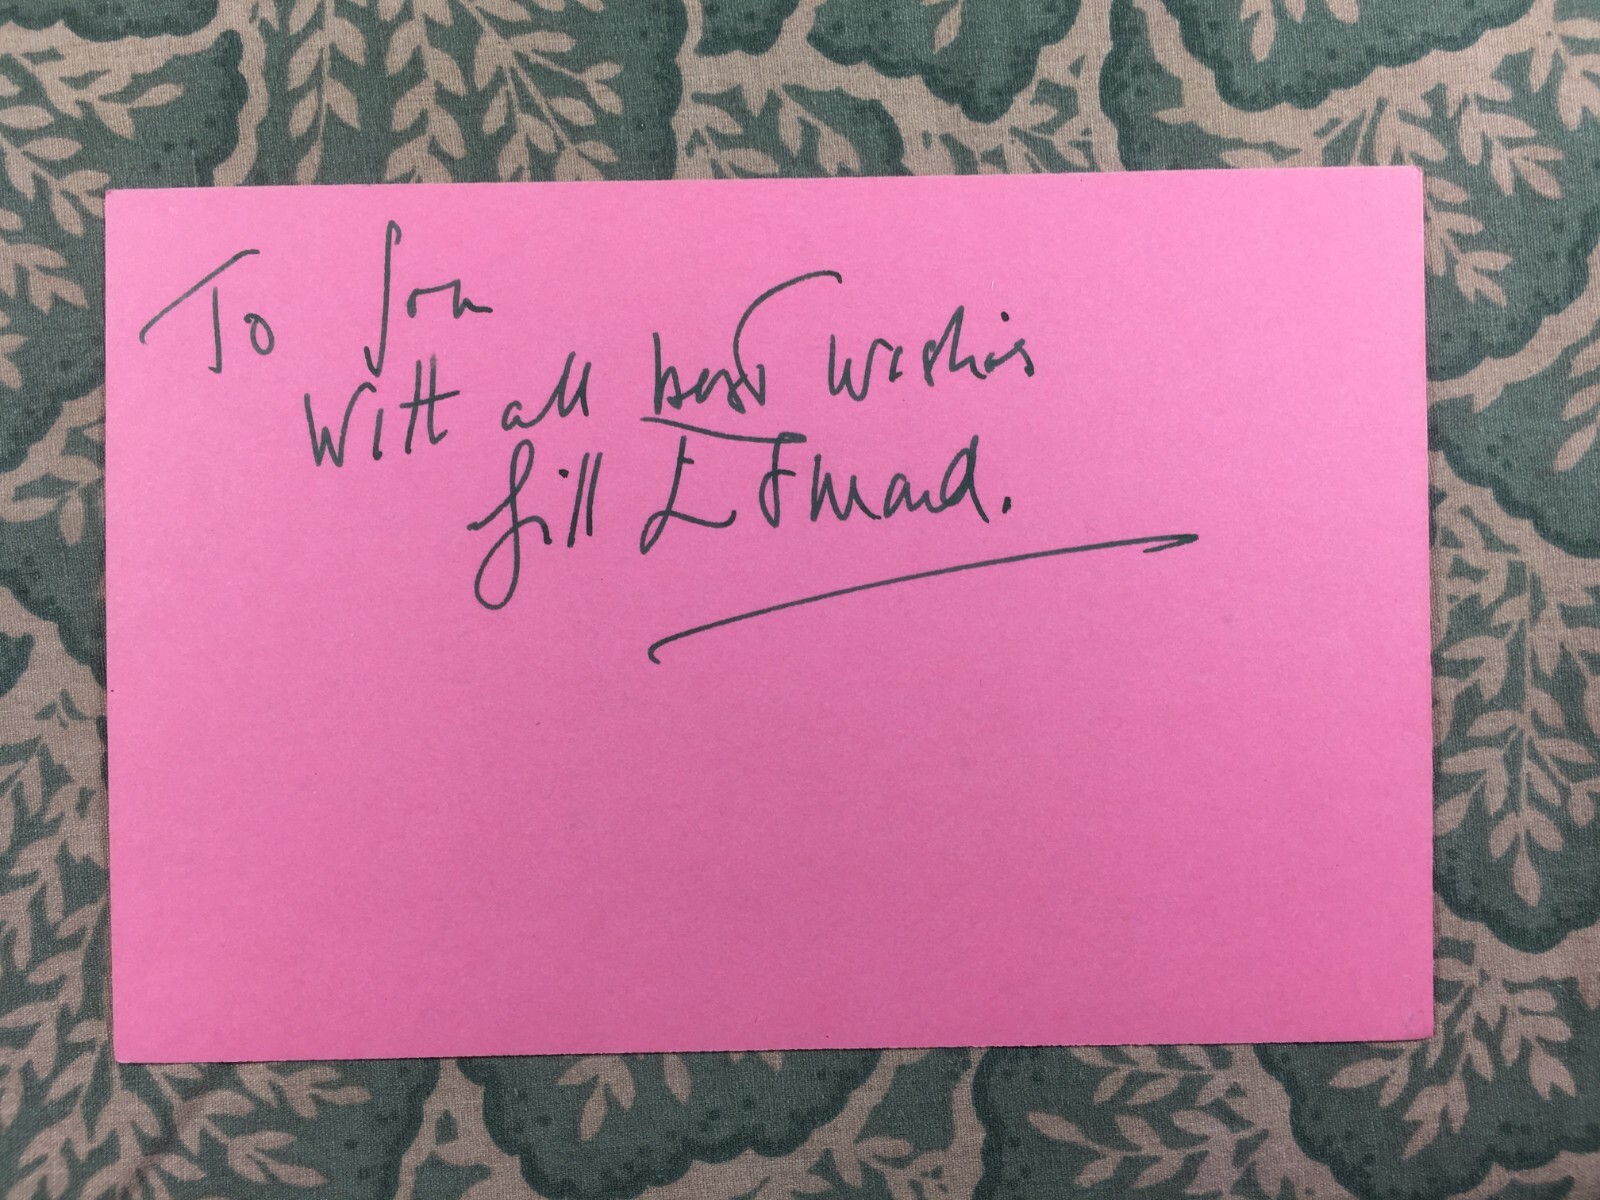 To Jon
With all best wishes
Jill